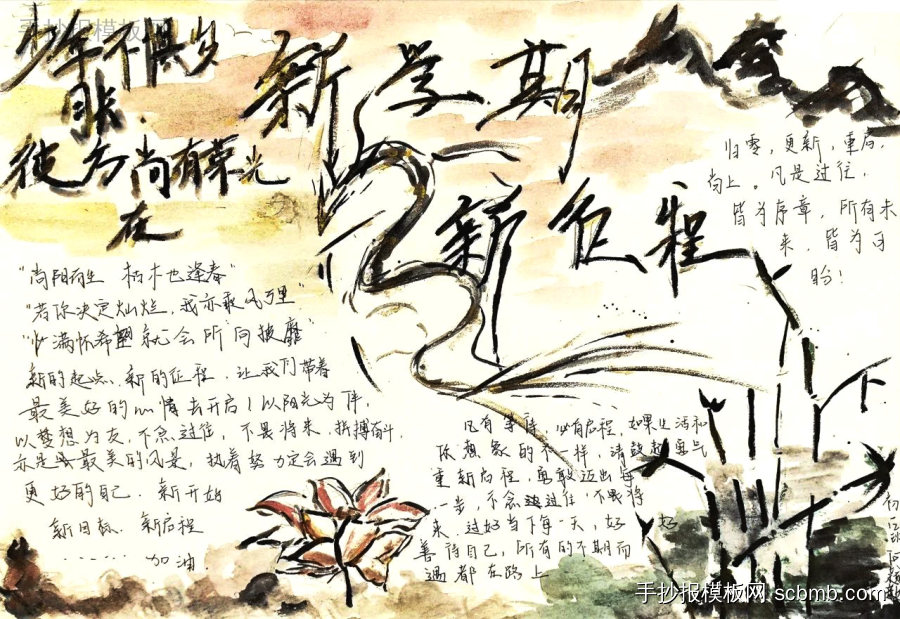 手抄报模板网
少年不惧岁
月长
彼方尚有荣光
在
新学期
新征程
归零，更新，重启，
向上。凡是过往，
皆为序章，所有未
来，皆为可
盼！
"向阳而生 枯木也逢春"
"若你决定灿烂，我亦乘风万里"
"心满怀希望 就会所向披靡"
新的起点、新的征程，让我们带着
最美好的心情去开启！以阳光为伴，
以梦想为友，不念过往，不畏将来，拼搏奋斗，
亦是最美的风景，执着努力定会遇到
更好的自己．新开始
新目标、新启程
......加油．
凡有等待，必有启程，如果生活和
你想象的不一样，请鼓起勇气
重新启程，勇敢迈出每
一步，不念过往 不畏将
来 过好当下每一天，好好
善待自己，所有的不期而
遇都在路上
手抄报模板网 scbmb.com